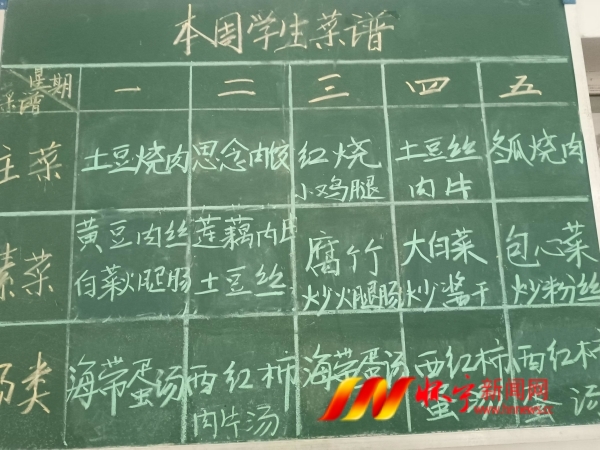 本周学生菜谱
星期 一 二 三 四 五
菜谱
主菜 土豆烧肉 思念肉饺 红烧 土豆丝 冬瓜烧肉
小鸡腿 肉片
素菜 黄豆肉丝 莲藕肉片 腐竹 大白菜 包心菜
白菜火腿肠 土豆丝 炒火腿肠 炒酱干 炒粉丝
汤类 海带蛋汤 西红柿 海带蛋汤 西红柿 西红柿
肉片汤 蛋汤 蛋汤
怀宁新闻网